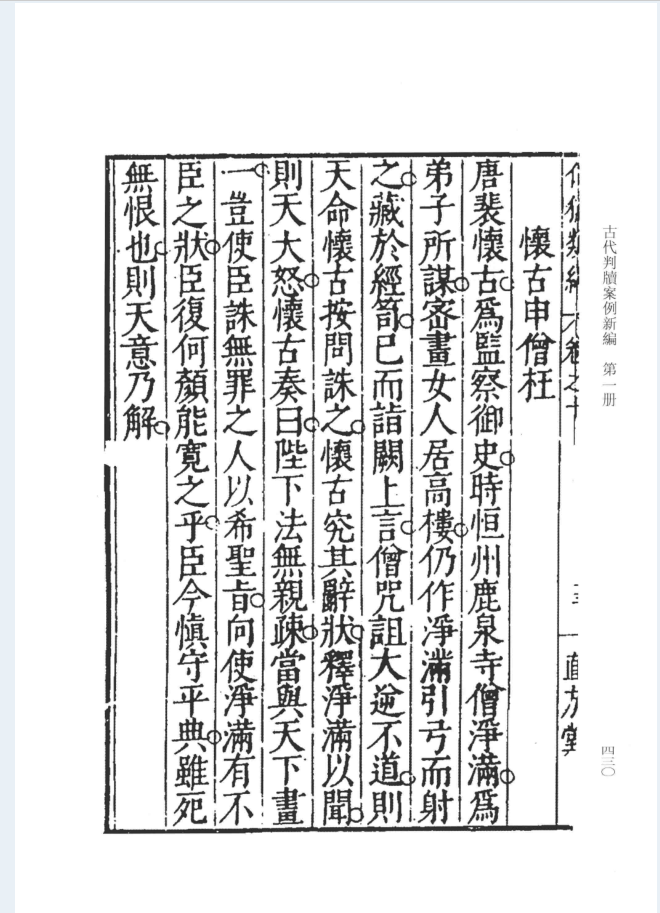 古代判牘案例新編　第一册
四三〇
懷古申僧枉
唐裴懷古。爲監察御史。時恒州鹿泉寺僧淨滿。爲
弟子所謀。密畫女人居高樓。仍作淨滿引弓而射
之。藏於經笥。已而詣闕上言。僧咒詛大逆不道。則
天命懷古按問誅之。懷古究其辭狀。釋淨滿以聞。
則天大怒。懷古奏曰。陛下法無親疎。當與天下畫
一。豈使臣誅無罪之人以希聖旨。向使淨滿有不
臣之狀。臣復何顏能寬之乎。臣今慎守平典。雖死
無恨也。則天意乃解。